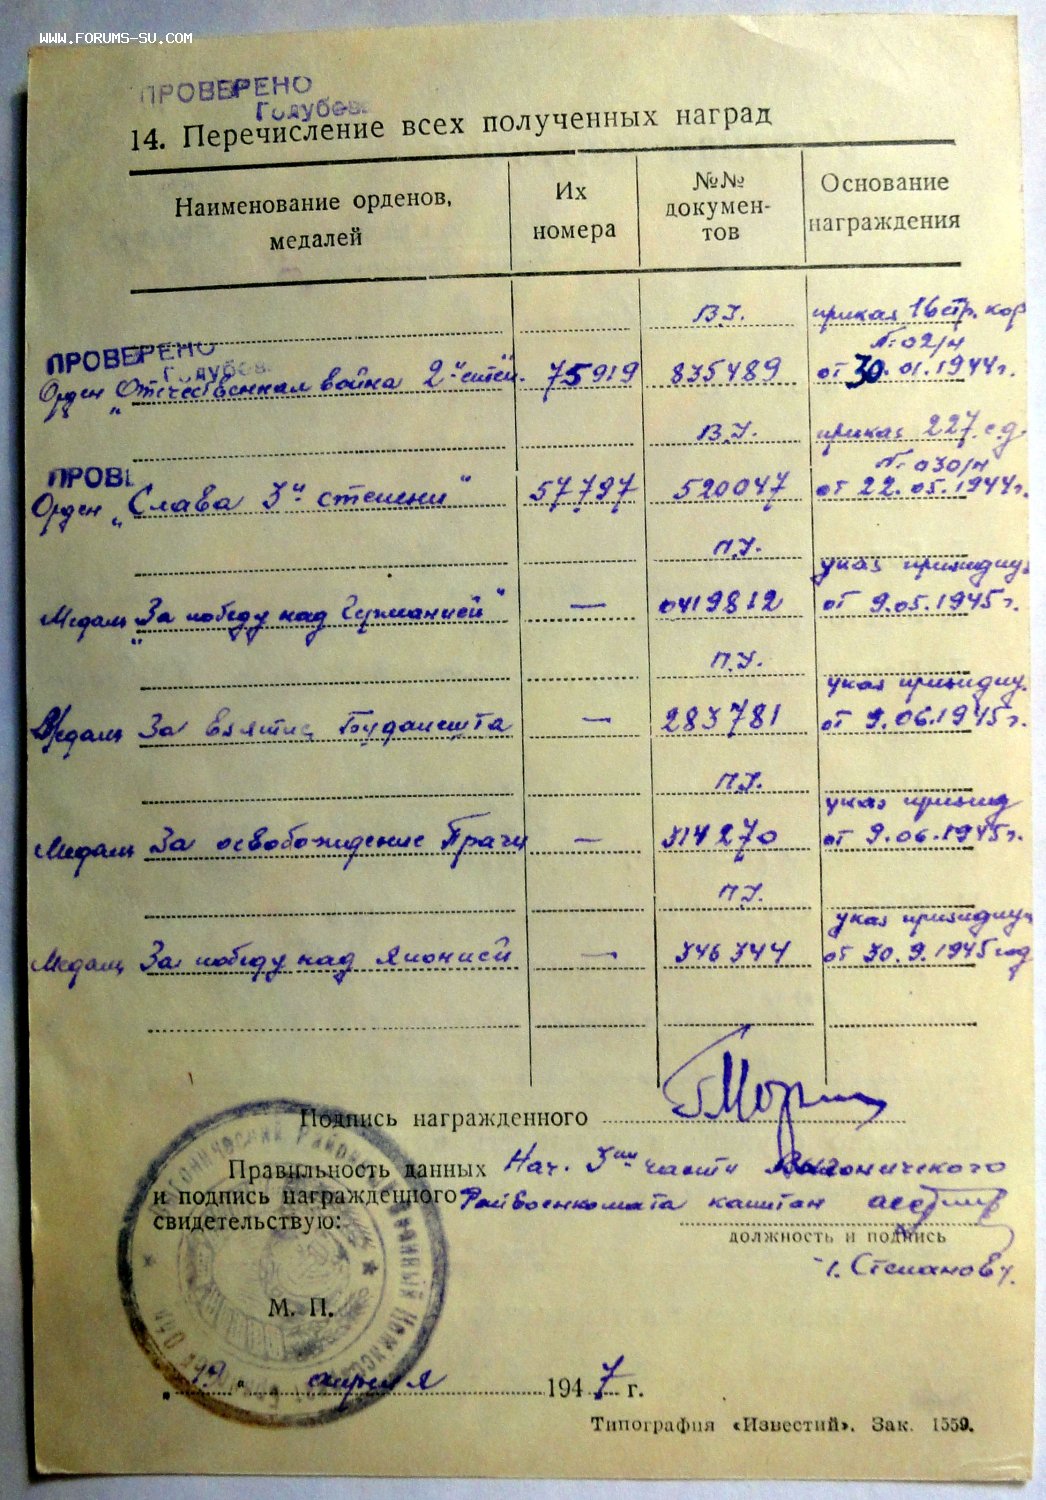 WWW.FORUMS-SU.COM
ПРОВЕРЕНО
Голубев
14. Перечисление всех полученных наград
Наименование орденов, медалей
Их номера
№№ докумен-тов
Основание награждения
В.У. приказ 16 стр. кор
№ 02/н
ПРОВЕРЕНО
Голубев
Орден „Отечественная война 2й степ. 75919 835489 от 30.01.1944г.
В.У. приказ 227 с.д.
№ 030/н
ПРОВЕ
Орден „Слава 3й степени" 57797 520047 от 22.05.1944г.
П.У. указ призидиу
Медаль „За победу над Германией" — 0419812 от 9.05.1945г.
П.У. указ призидиу.
Медаль За взятие Будапешта — 283781 от 9.06.1945г.
П.У. указ призид
Медаль За освобождение Праги — 314270 от 9.06.1945г.
П.У. указ призидиу
Медаль За победу над Японией — 346344 от 30.9.1945 год
Подпись награжденного
Правильность данных Нач. 3ей части Выгоничского
и подпись награжденного Райвоенкомата капитан
свидетельствую:
должность и подпись
Степанову.
М. П.
„19" апреля 1947 г.
Типография «Известий». Зак. 1559.